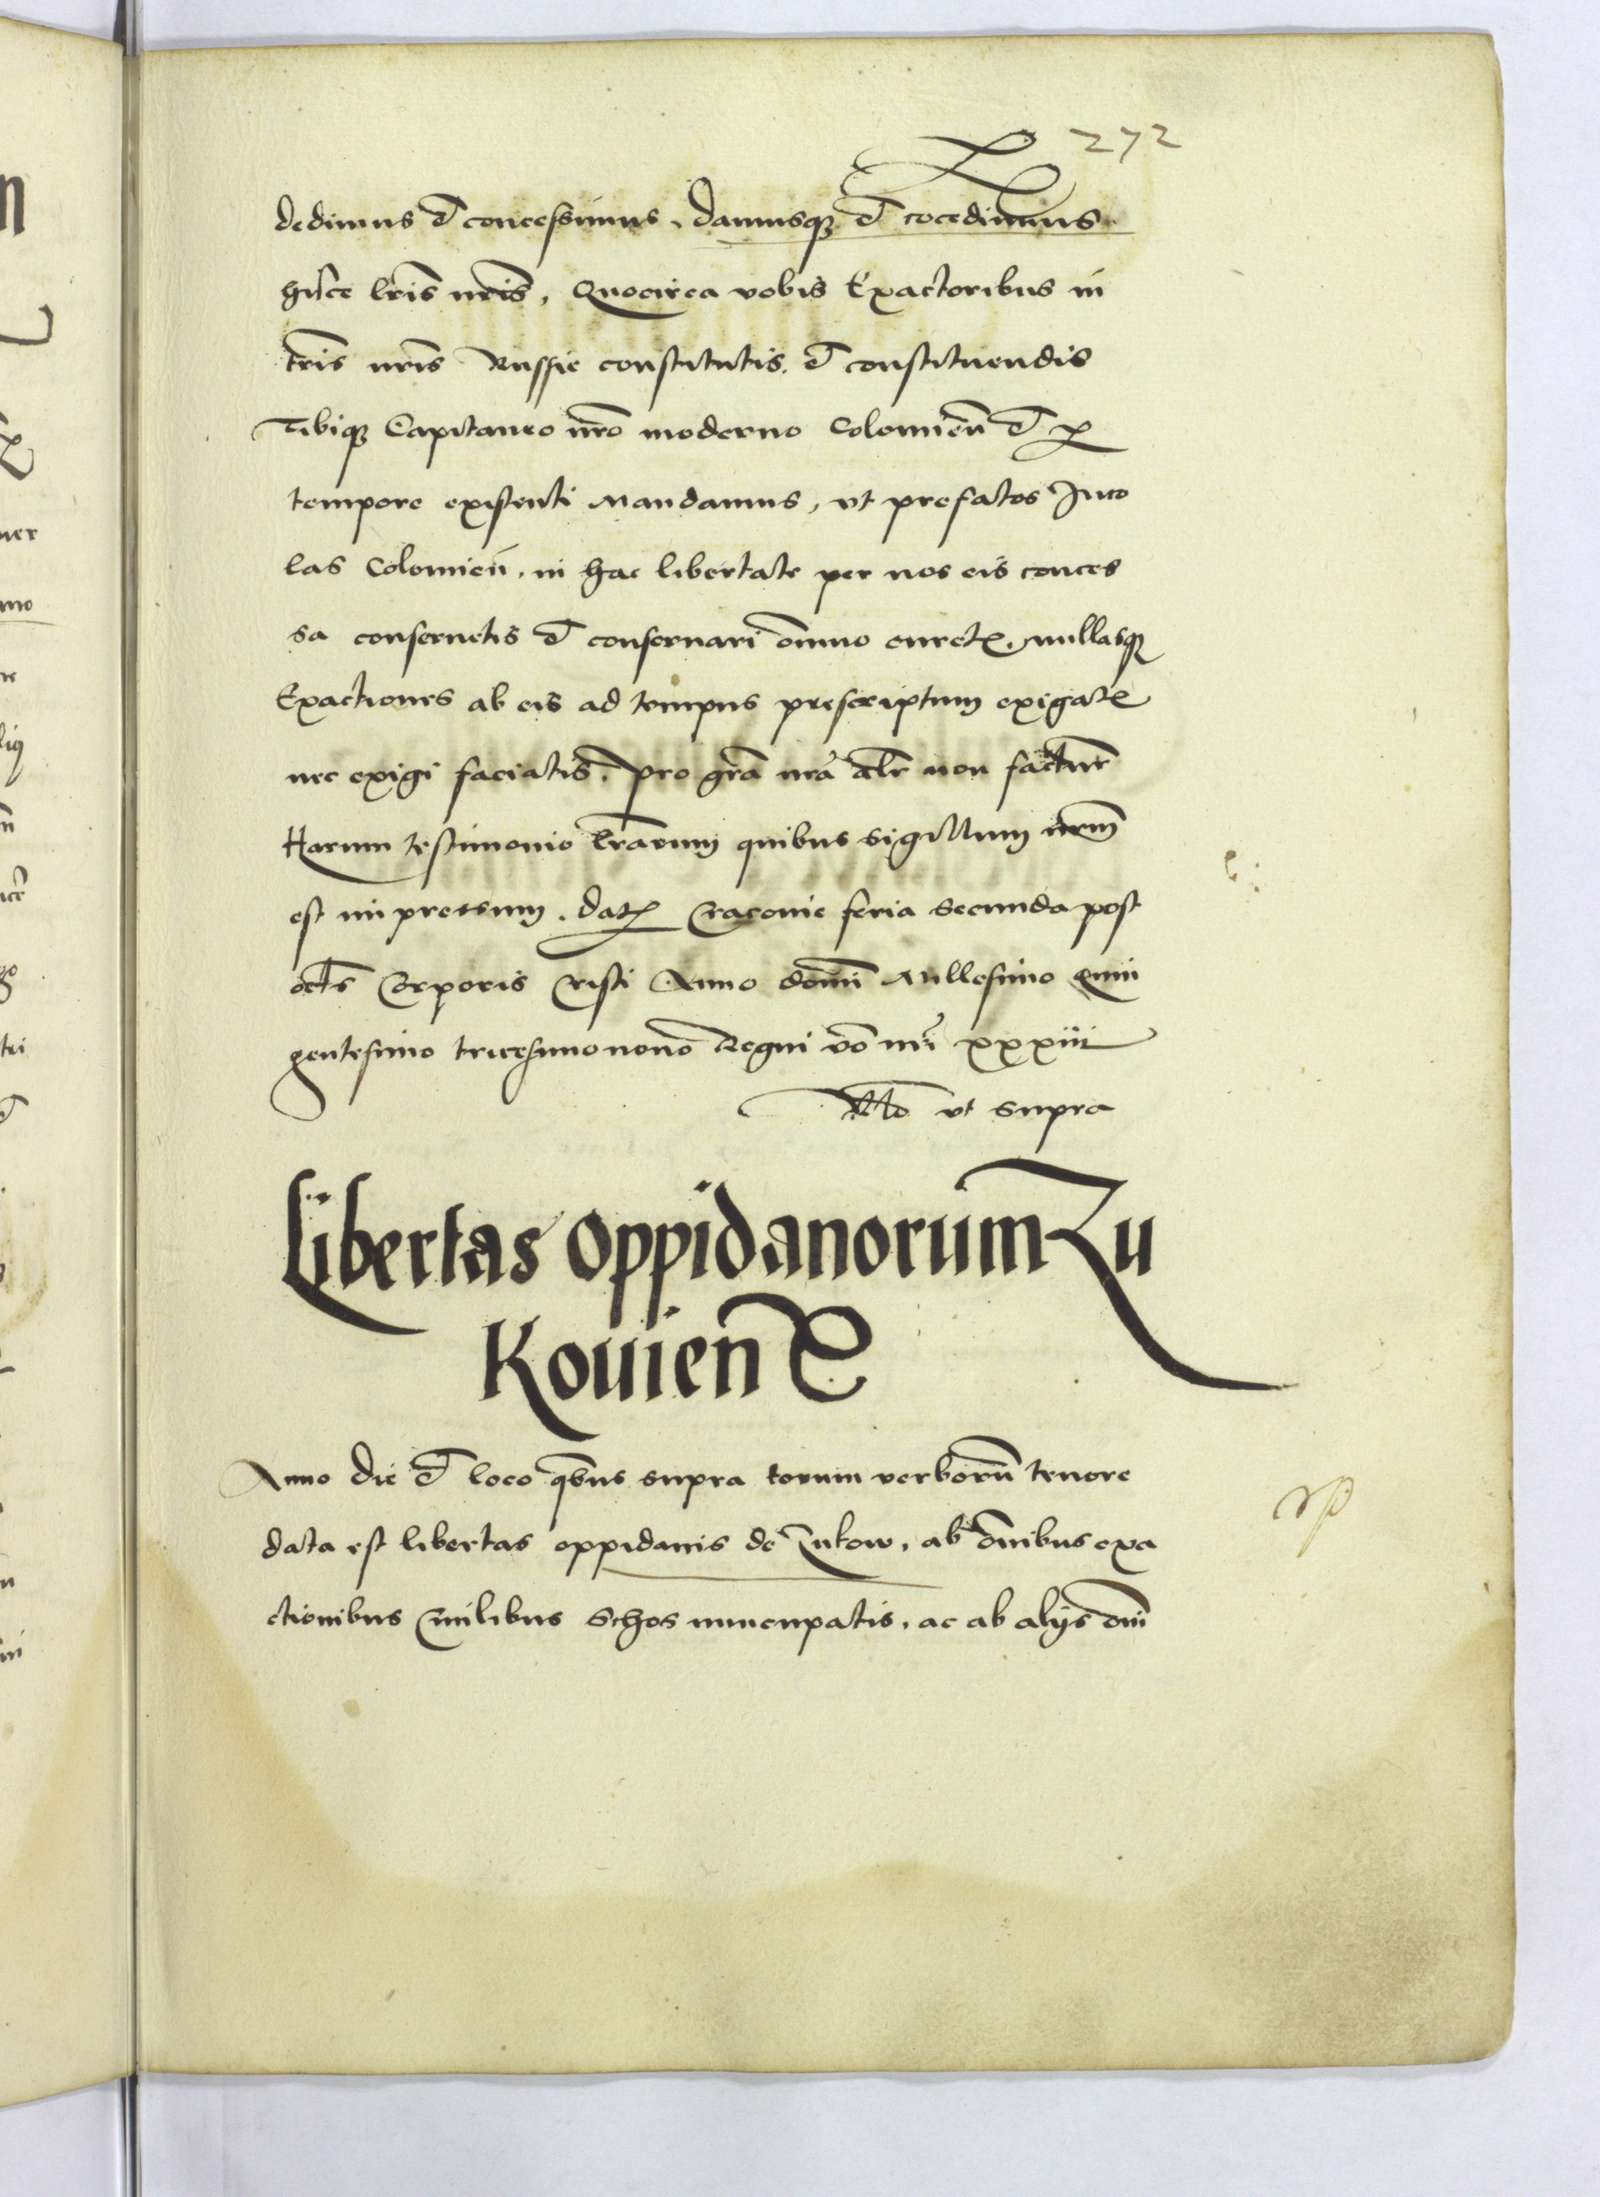 272
dedimus et concessimus, damusq et cōcedimus
hisce lr̄is nr̄is, Quocirca vobis Exactoribus in
tr̄is nr̄is Russie constitutis et constituendis
Tibiq Capitaneo nr̄o moderno Colomien̄ et p
tempore existenti Mandamus, vt prefatos Inco
las Colomien̄, in hac libertate per nos eis conces
sa conseruetis et conseruari om̄ino curet, nullasq
Exactiones ab eis ad tempus prescriptum exigat
nec exigi faciatis, pro gr̄a nr̄a alr̄ non factur̄
Harum testimonio lr̄arum quibus sigillum nrm̄
est impressum. dat Cracovie feria secunda post
oct̄s Corporis Cristi Anno domī Millesimo quin
gentesimo tricesimonono Regni vō nr̄i xxxiii
vt supra
Libertas Oppidanorum Zu
Kouien
Anno die et loco qbus supra eorum verborū tenore
data est libertas oppidanis de Zukow, ab om̄ibus exa
ctionibus Ciuilibus Schos nuncupatis, ac ab alijs om̄i